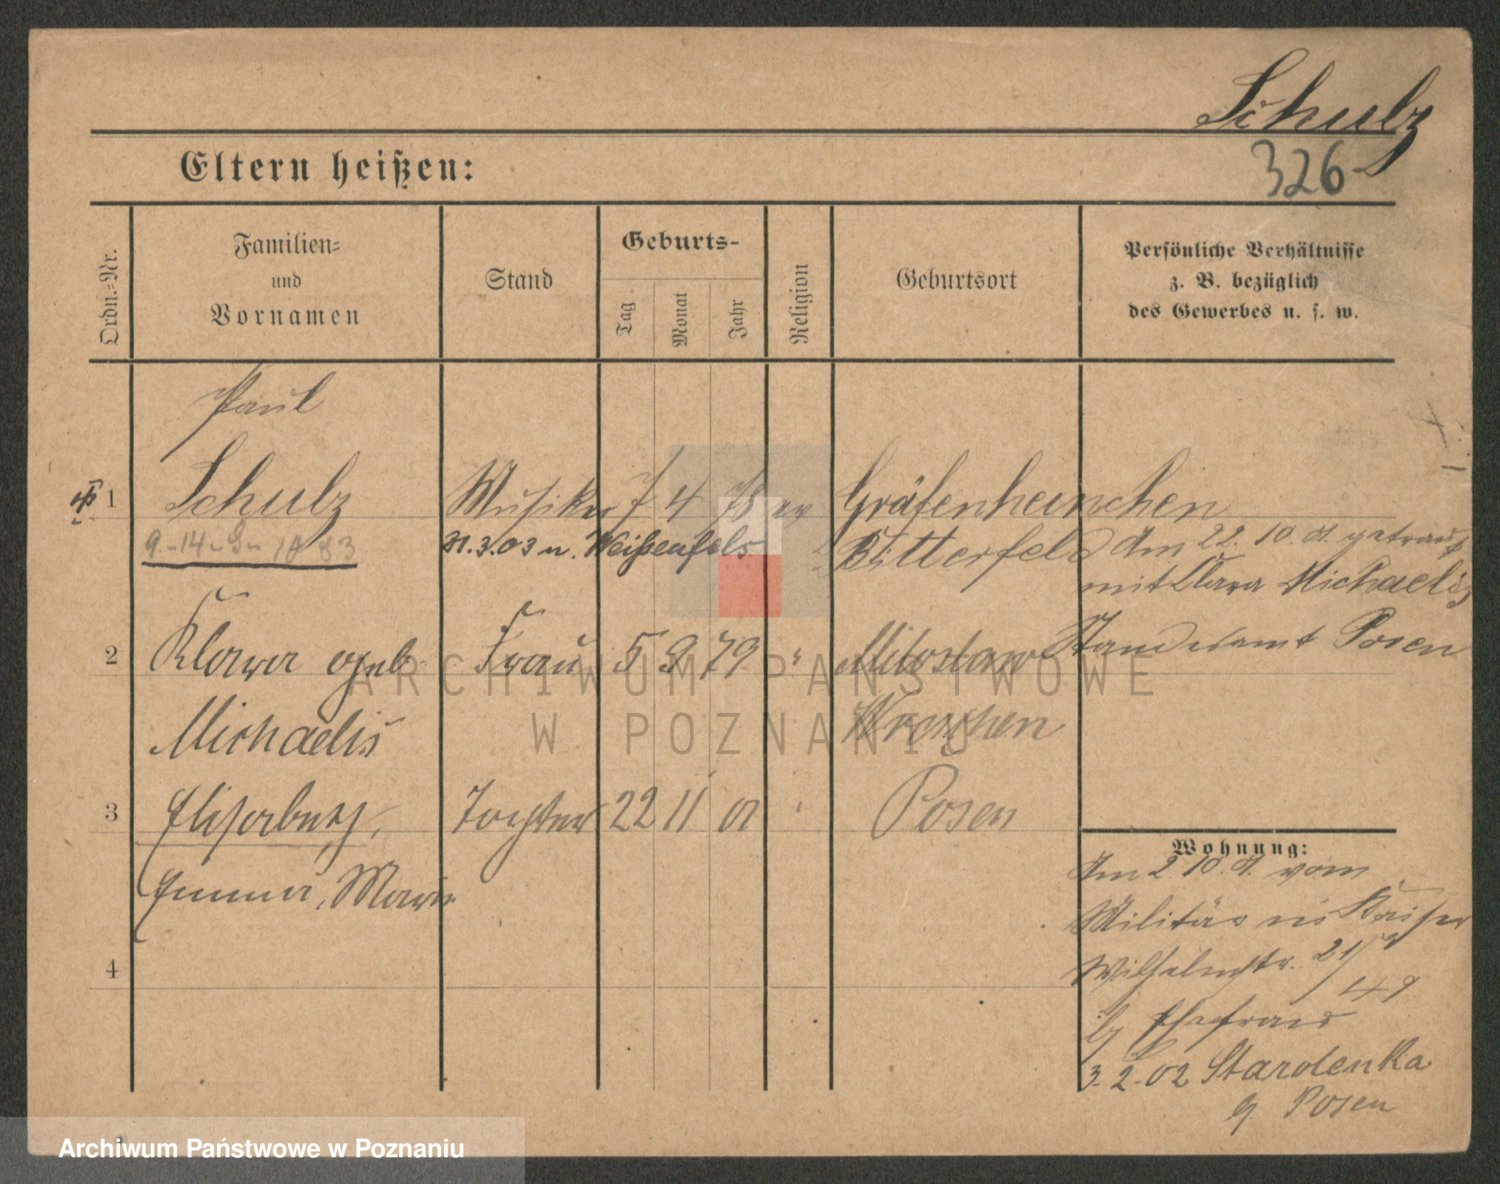 Schulz
326
Eltern heißen:
Ordn.-Nr.
Familien-
und
Vornamen
Stand
Geburts-
Tag
Monat
Jahr
Religion
Geburtsort
Persönliche Verhältnisse
z. B. bezüglich
des Gewerbes u. s. w.
Paul
1 Schulz Musiker 7 4 78 ev Gräfenheinchen
9.-14.-S-
31.3.03 n. Weißenfels Bitterfeld
Am 22. 10. 01 getraut
mit Clara Michaelis
Standesamt Posen
2 Klara geb. Frau 5 9 79 " Miloslaw
Michaelis Wreschen
3 Elisabeth, Tochter 22 11 01 " Posen
Emma, Marie
4
Wohnung:
Am 2 10. 01. vom
Militär in Kaiser
Wilhelmstr. 21
b/ Ehefrau
3. 2. 02 Starolenka
b/ Posen
ARCHIWUM PAŃSTWOWE
W POZNANIU
Archiwum Państwowe w Poznaniu